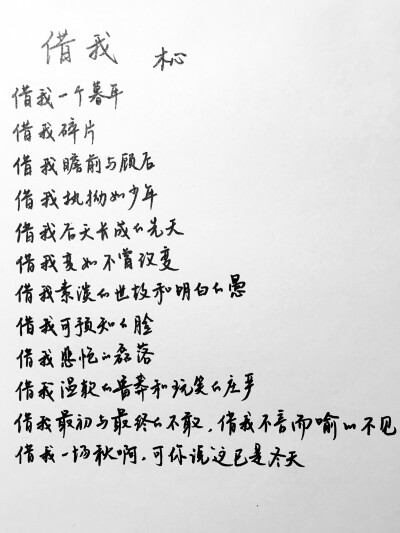 借我 木心
借我一个暮年
借我碎片
借我瞻前与顾后
借我执拗如少年
借我后天长成的先天
借我变如不嘗改变
借我素淡的世故和明白的愚
借我可预知的脸
借我悲怆的磊落
借我温软的鲁莽和玩笑的庄严
借我最初与最终的不敢，借我不言而喻的不见
借我一场秋啊，可你说这已是冬天